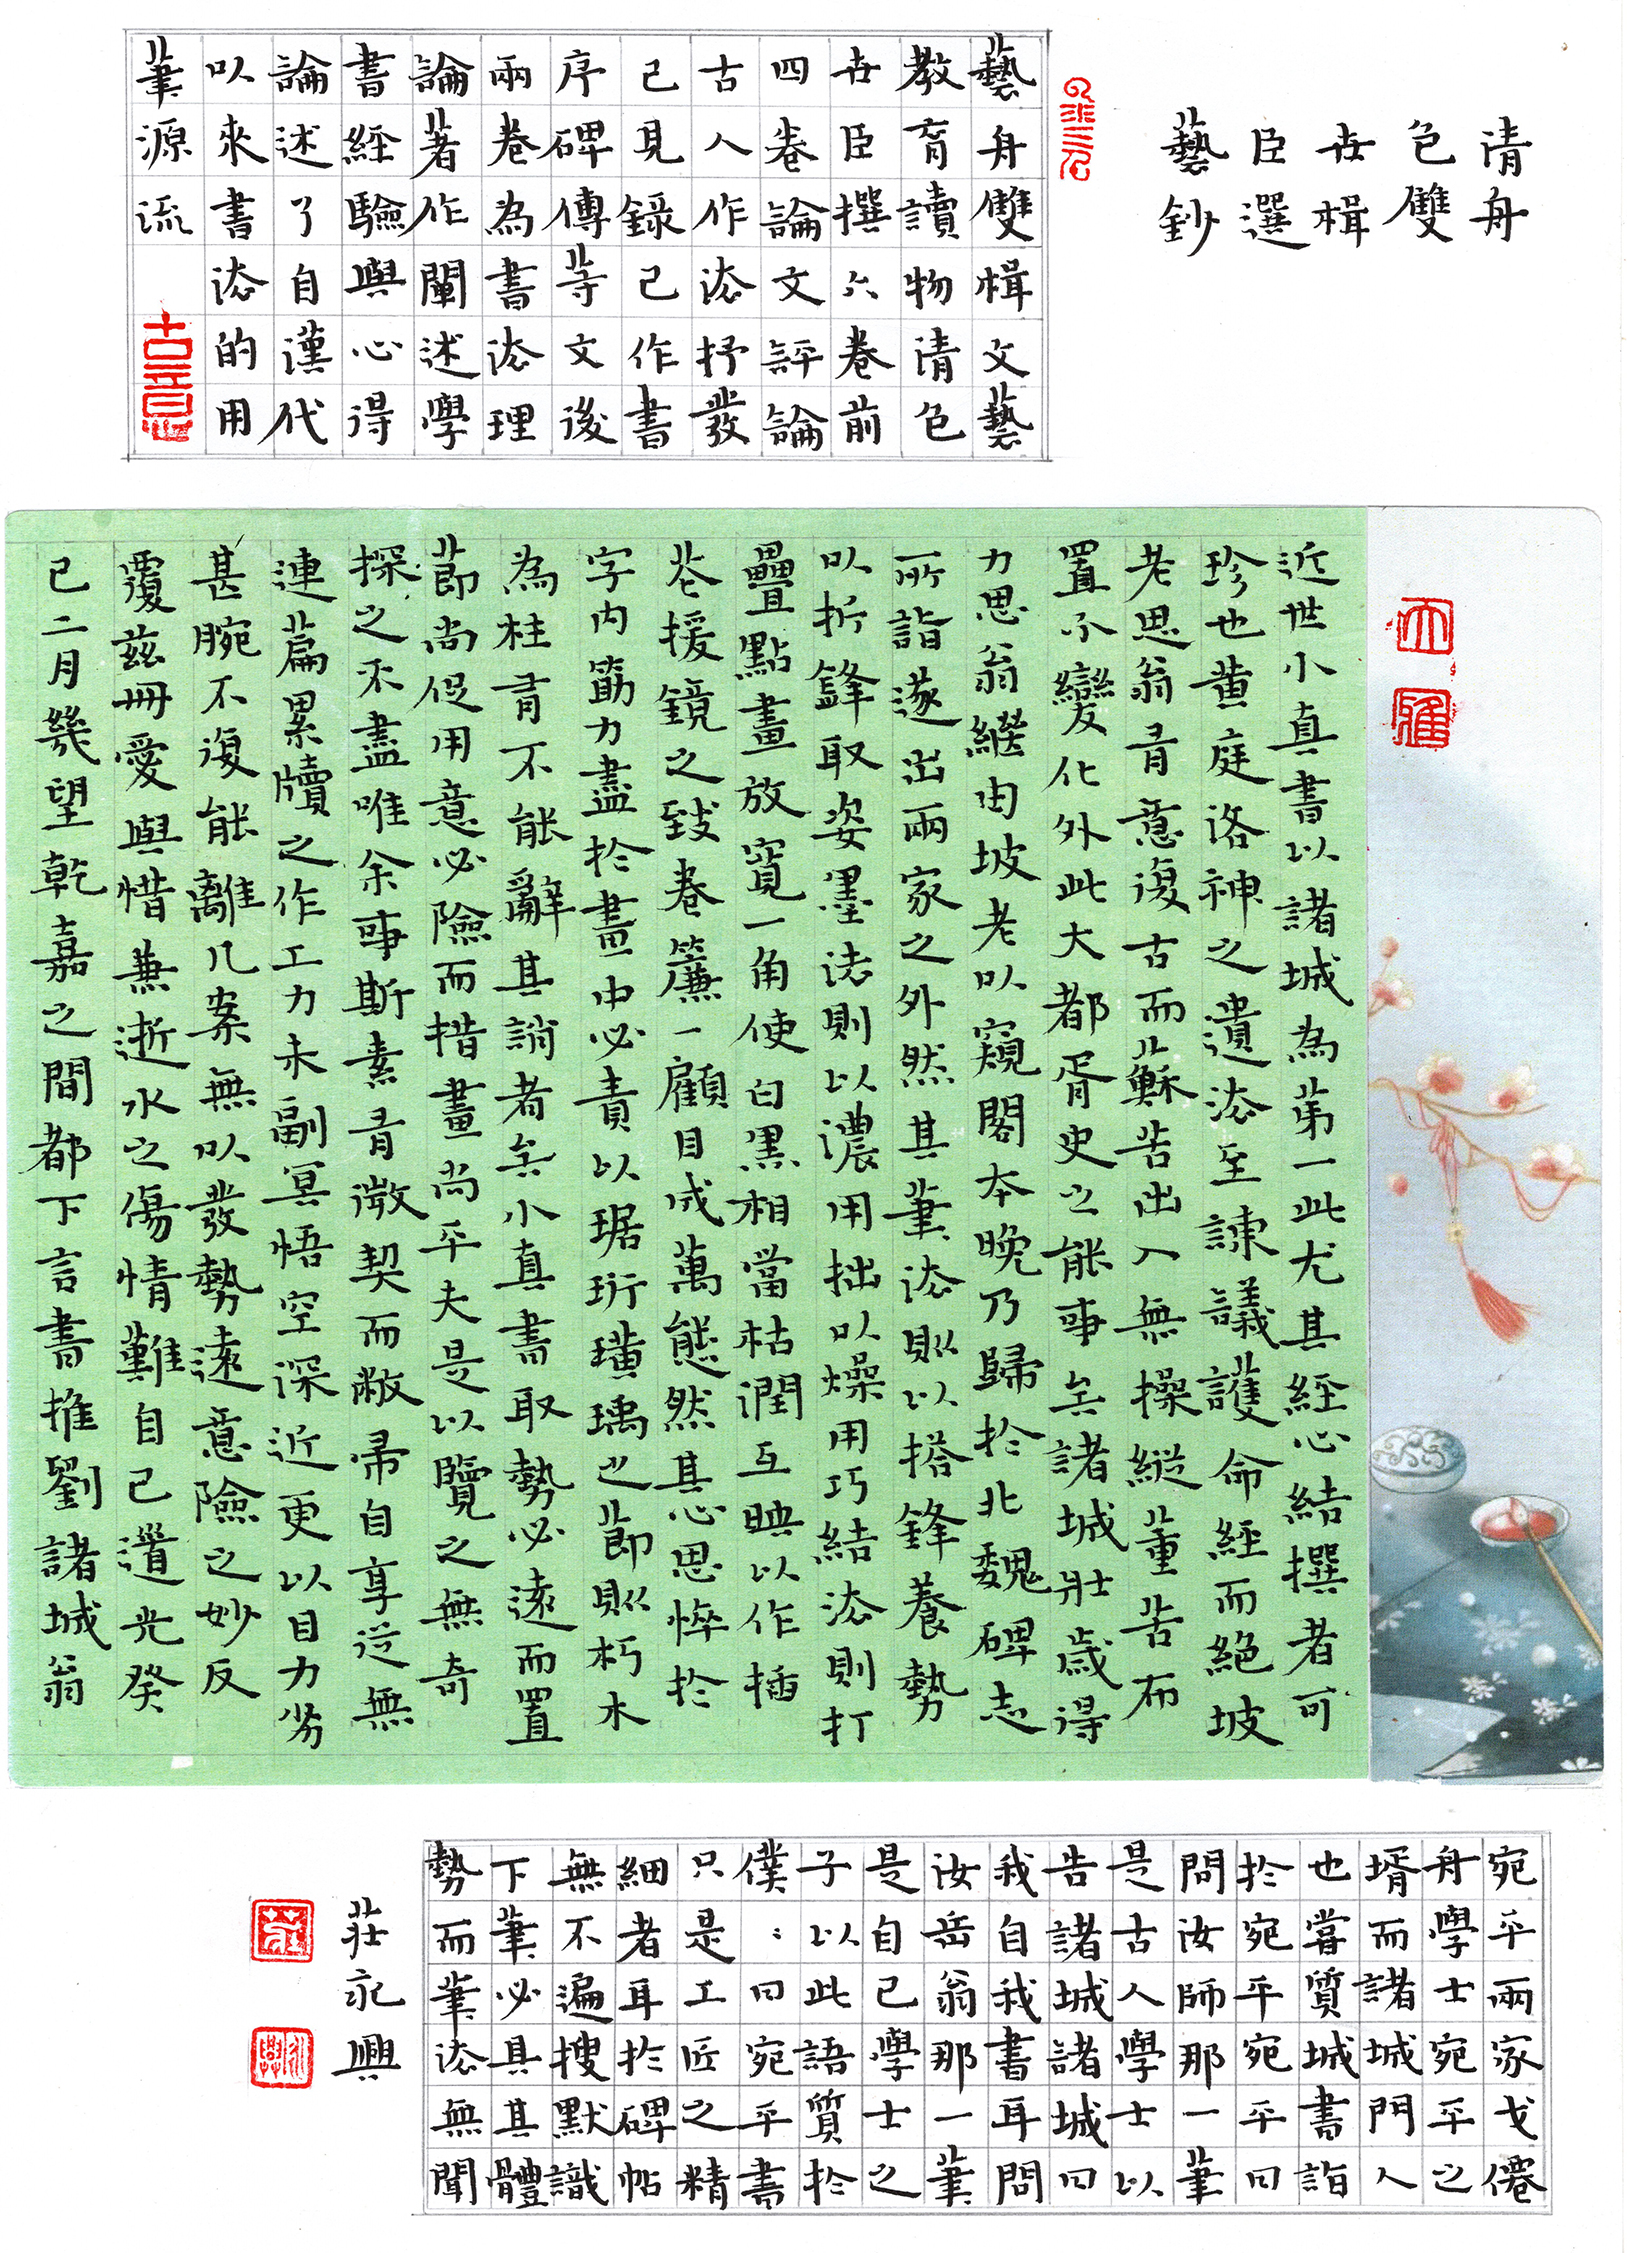 清包世臣藝
舟雙楫選鈔
藝舟雙楫文藝
教育讀物清包
世臣撰六卷前
四卷論文評論
古人作法抒發
已見錄己作書
序碑傳等文後
兩卷為書法理
論著作闡述學
書經驗與心得
論述了自漢代
以來書法的用
筆源流
大雅
近世小真書以諸城為第一此尤其經心結撰者可
珍也黃庭洛神之遺法至諫議護命經而絕坡
老思翁肯意復古而蘇苦出入無操縱董苦布
置不變化外此大都胥史之能事矣諸城壯歲得
力思翁繼由坡老以窺閣本晚乃歸於北魏碑志
所詣遂出兩家之外然其筆法則以搭鋒養勢
以折鋒取姿墨法則以濃用拙以燥用巧結法則打
疊點畫放寬一角使白黑相當枯潤互映以作插
花援鏡之致卷簾一顧目成萬態然其心思悴於
字内筋力盡於畫中必責以琚珩璜瑀之節則朽木
為柱有不能辭其誚者矣小真書取勢必遠而置
節尚促用意必險而措畫尚平夫是以覽之無奇
探之不盡唯余事斯素有微契而敝帚自享從無
連篇累牘之作工力未副冥悟空深近更以目力劣
甚腕不復能離几案無以發勢遠意險之妙反
覆茲冊愛與惜兼逝水之傷情難自已道光癸
巳二月幾望乾嘉之間都下言書推劉諸城翁
宛平兩家戈僊
舟學士宛平之
壻而諸城門人
也嘗質城書詣
於宛平宛平曰
問汝師那一筆
是古人學士以
告諸城諸城曰
我自我書耳問
汝岳翁那一筆
是自己學士之
子以此語質於
僕〻曰宛平書
只是工匠之精
細者耳於碑帖
無不遍搜默識
下筆必具其體
勢而筆法無聞
莊永興